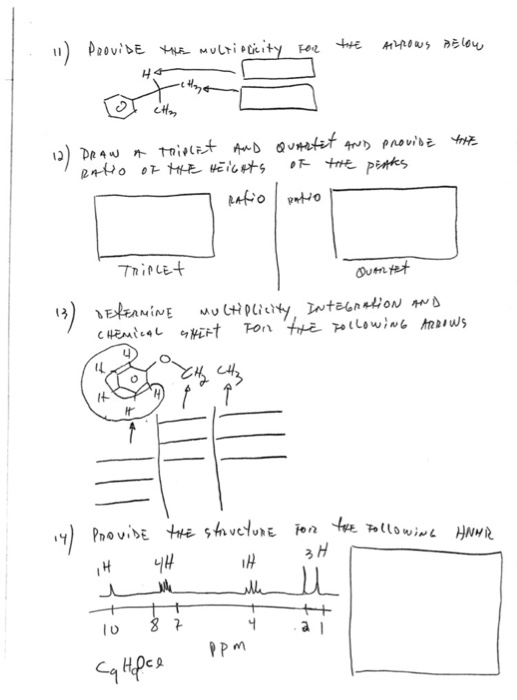 11) PROVIDE THE MULTIPLICITY FOR THE ARROWS BELOW
H
CH3
CH3
12) DRAW A TRIPLET AND QUARTET AND PROVIDE THE
RATIO OF THE HEIGHTS OF THE PEAKS
RATIO RATIO
TRIPLET QUARTET
13) DETERMINE MULTIPLICITY INTEGRATION AND
CHEMICAL SHIFT FOR THE FOLLOWING ARROWS
H O
H CH2 CH3
H H
H
14) PROVIDE THE STRUCTURE FOR THE FOLLOWING HNMR
1H 4H 1H 3H
10 8 7 4 2 1
PPM